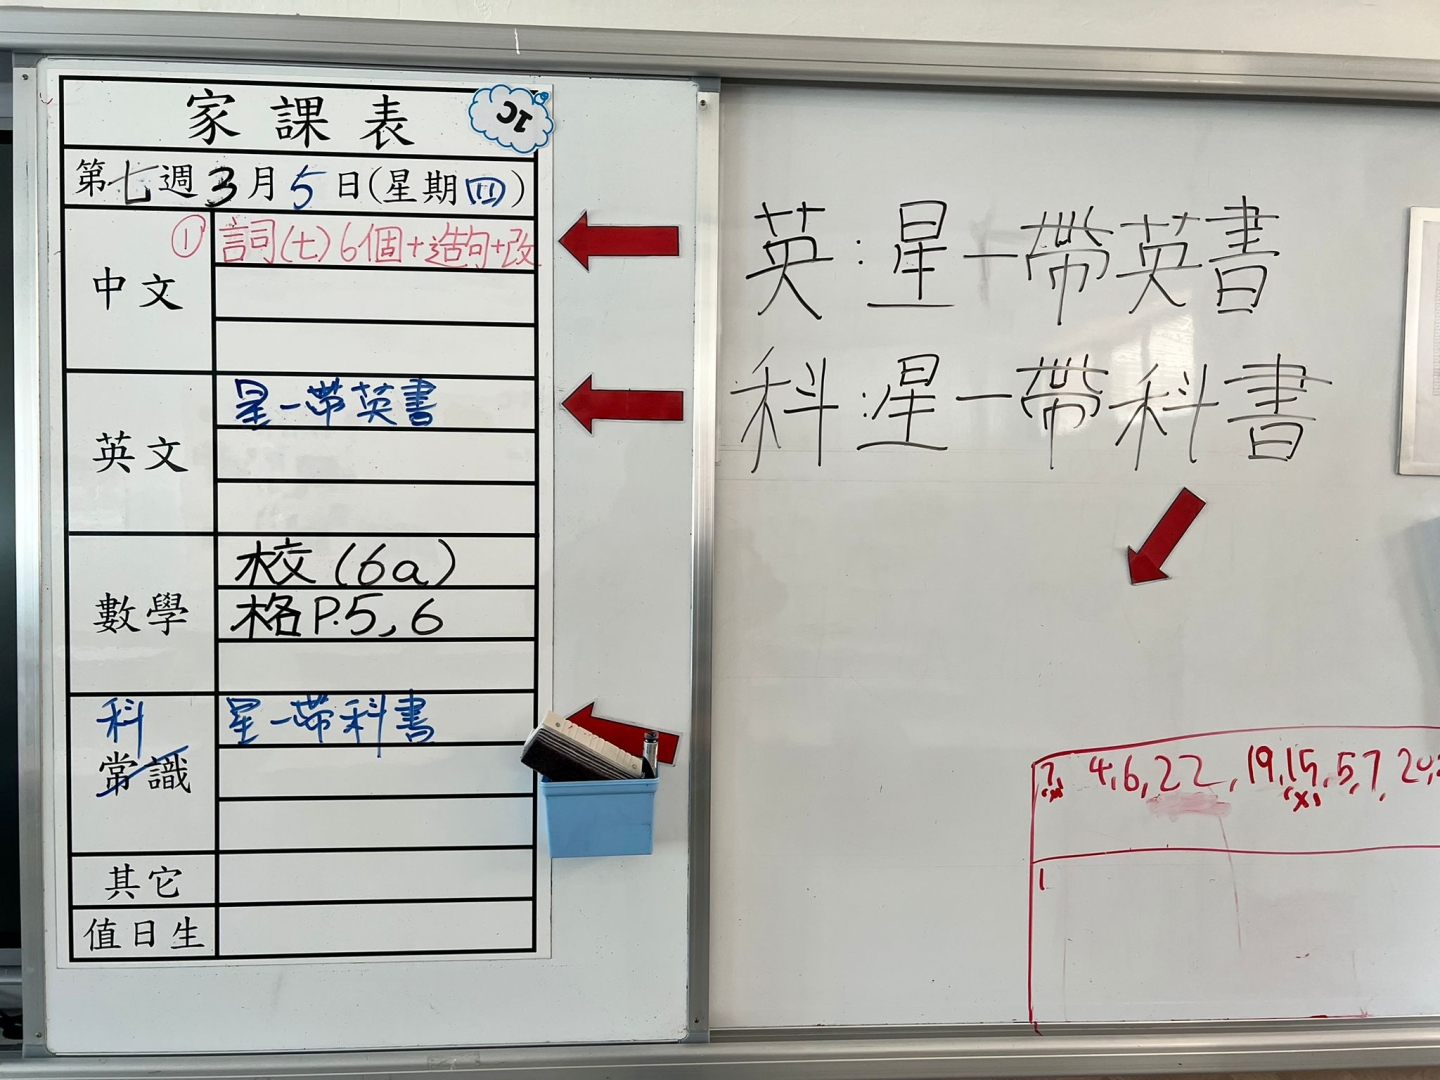 家課表
1C
第七週3月5日(星期四)
中文
① 詞(七)6個+造句+改
英文
星一帶英書
數學
校(6a)
格P.5,6
科
常識
星一帶科書
其它
值日生
英:星一帶英書
科:星一帶科書
7, 4,6,22,19,15,5,7,20,
(x) (x)
1